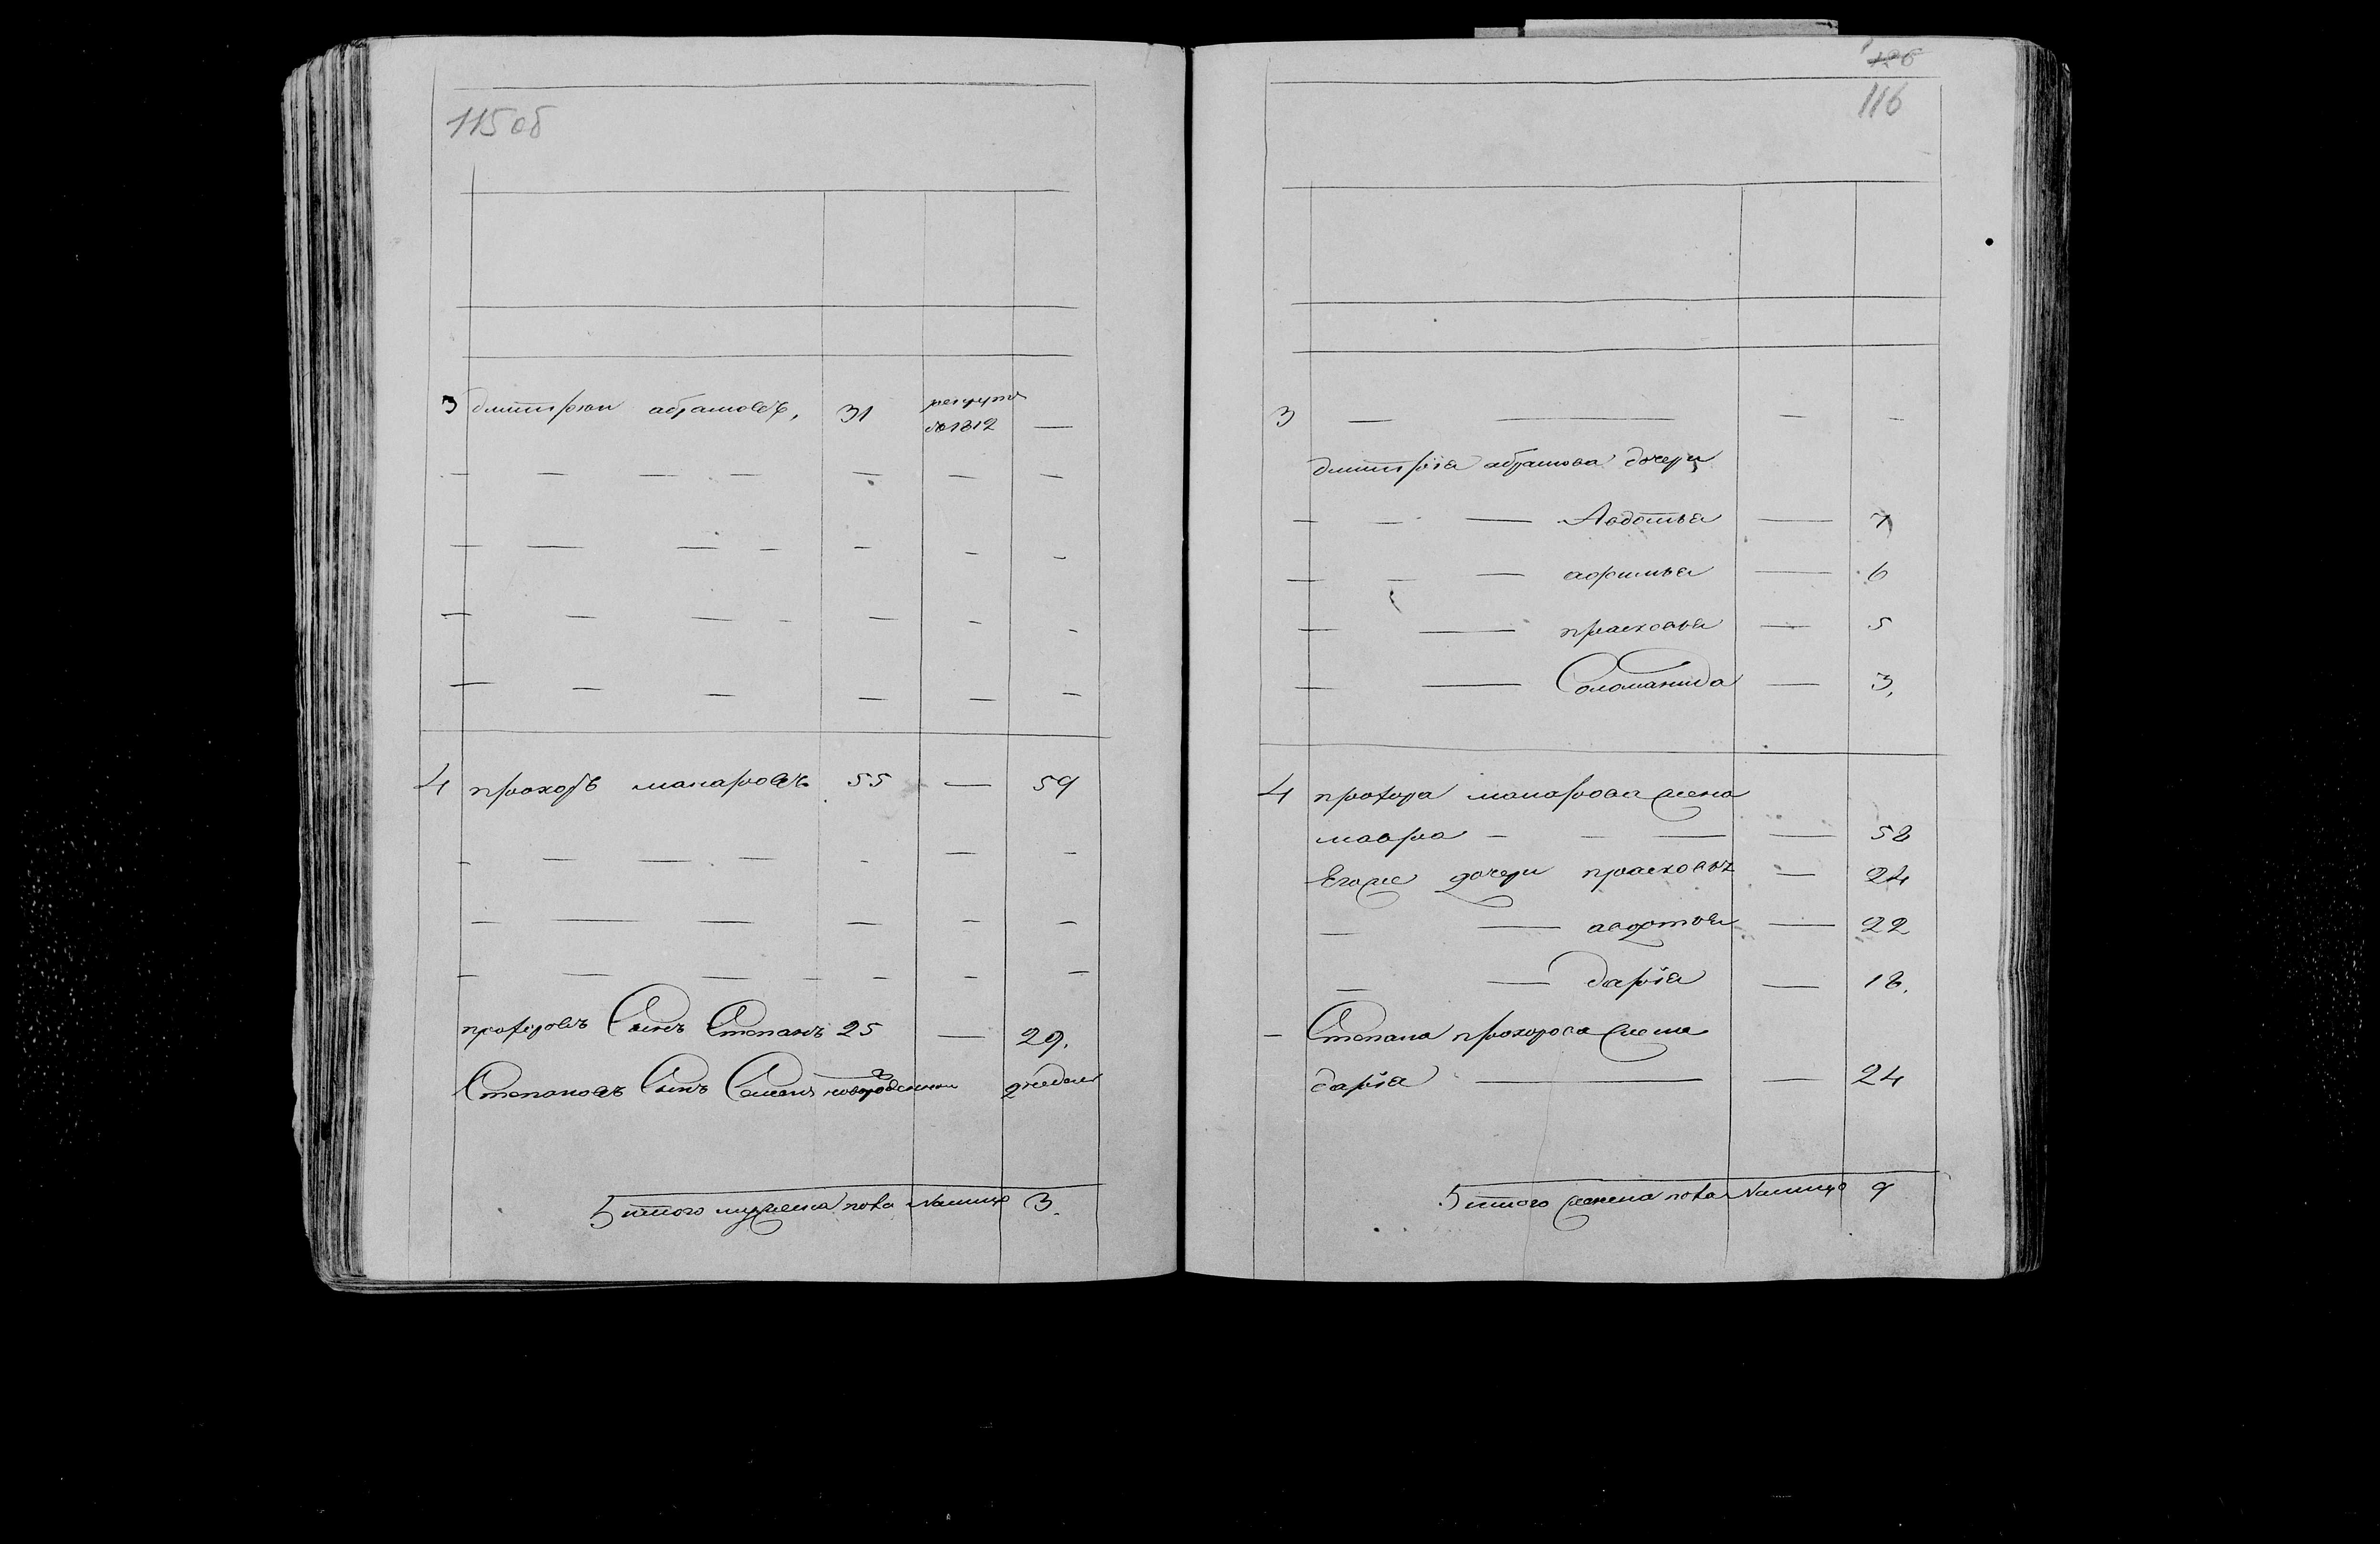 115об
3 дмитрѣи абрамовъ, 31 рекрутъ
въ 1812 —
4 прохоръ макаровъ 55 — 59
прохоровъ Сынъ Степанъ 25 — 29.
Степановъ Сынъ Семенъ новорожденнои 2 недели
итого мужеска пола налицо 3.
126
116
3 — — — —
дмитрїя абрамова дочери
— — — Авдотья — 7
— — — афимья — 6
— — прасковья — 5
— — Соломанида — 3,
4 прохора макарова жена
мавра — — — — 58
Егоже дочери прасковья — 24
— — авдотья — 22
— — дарїя — 18.
— Степана прохорова жена
дарїя — — 24
итого женска пола налицо 9